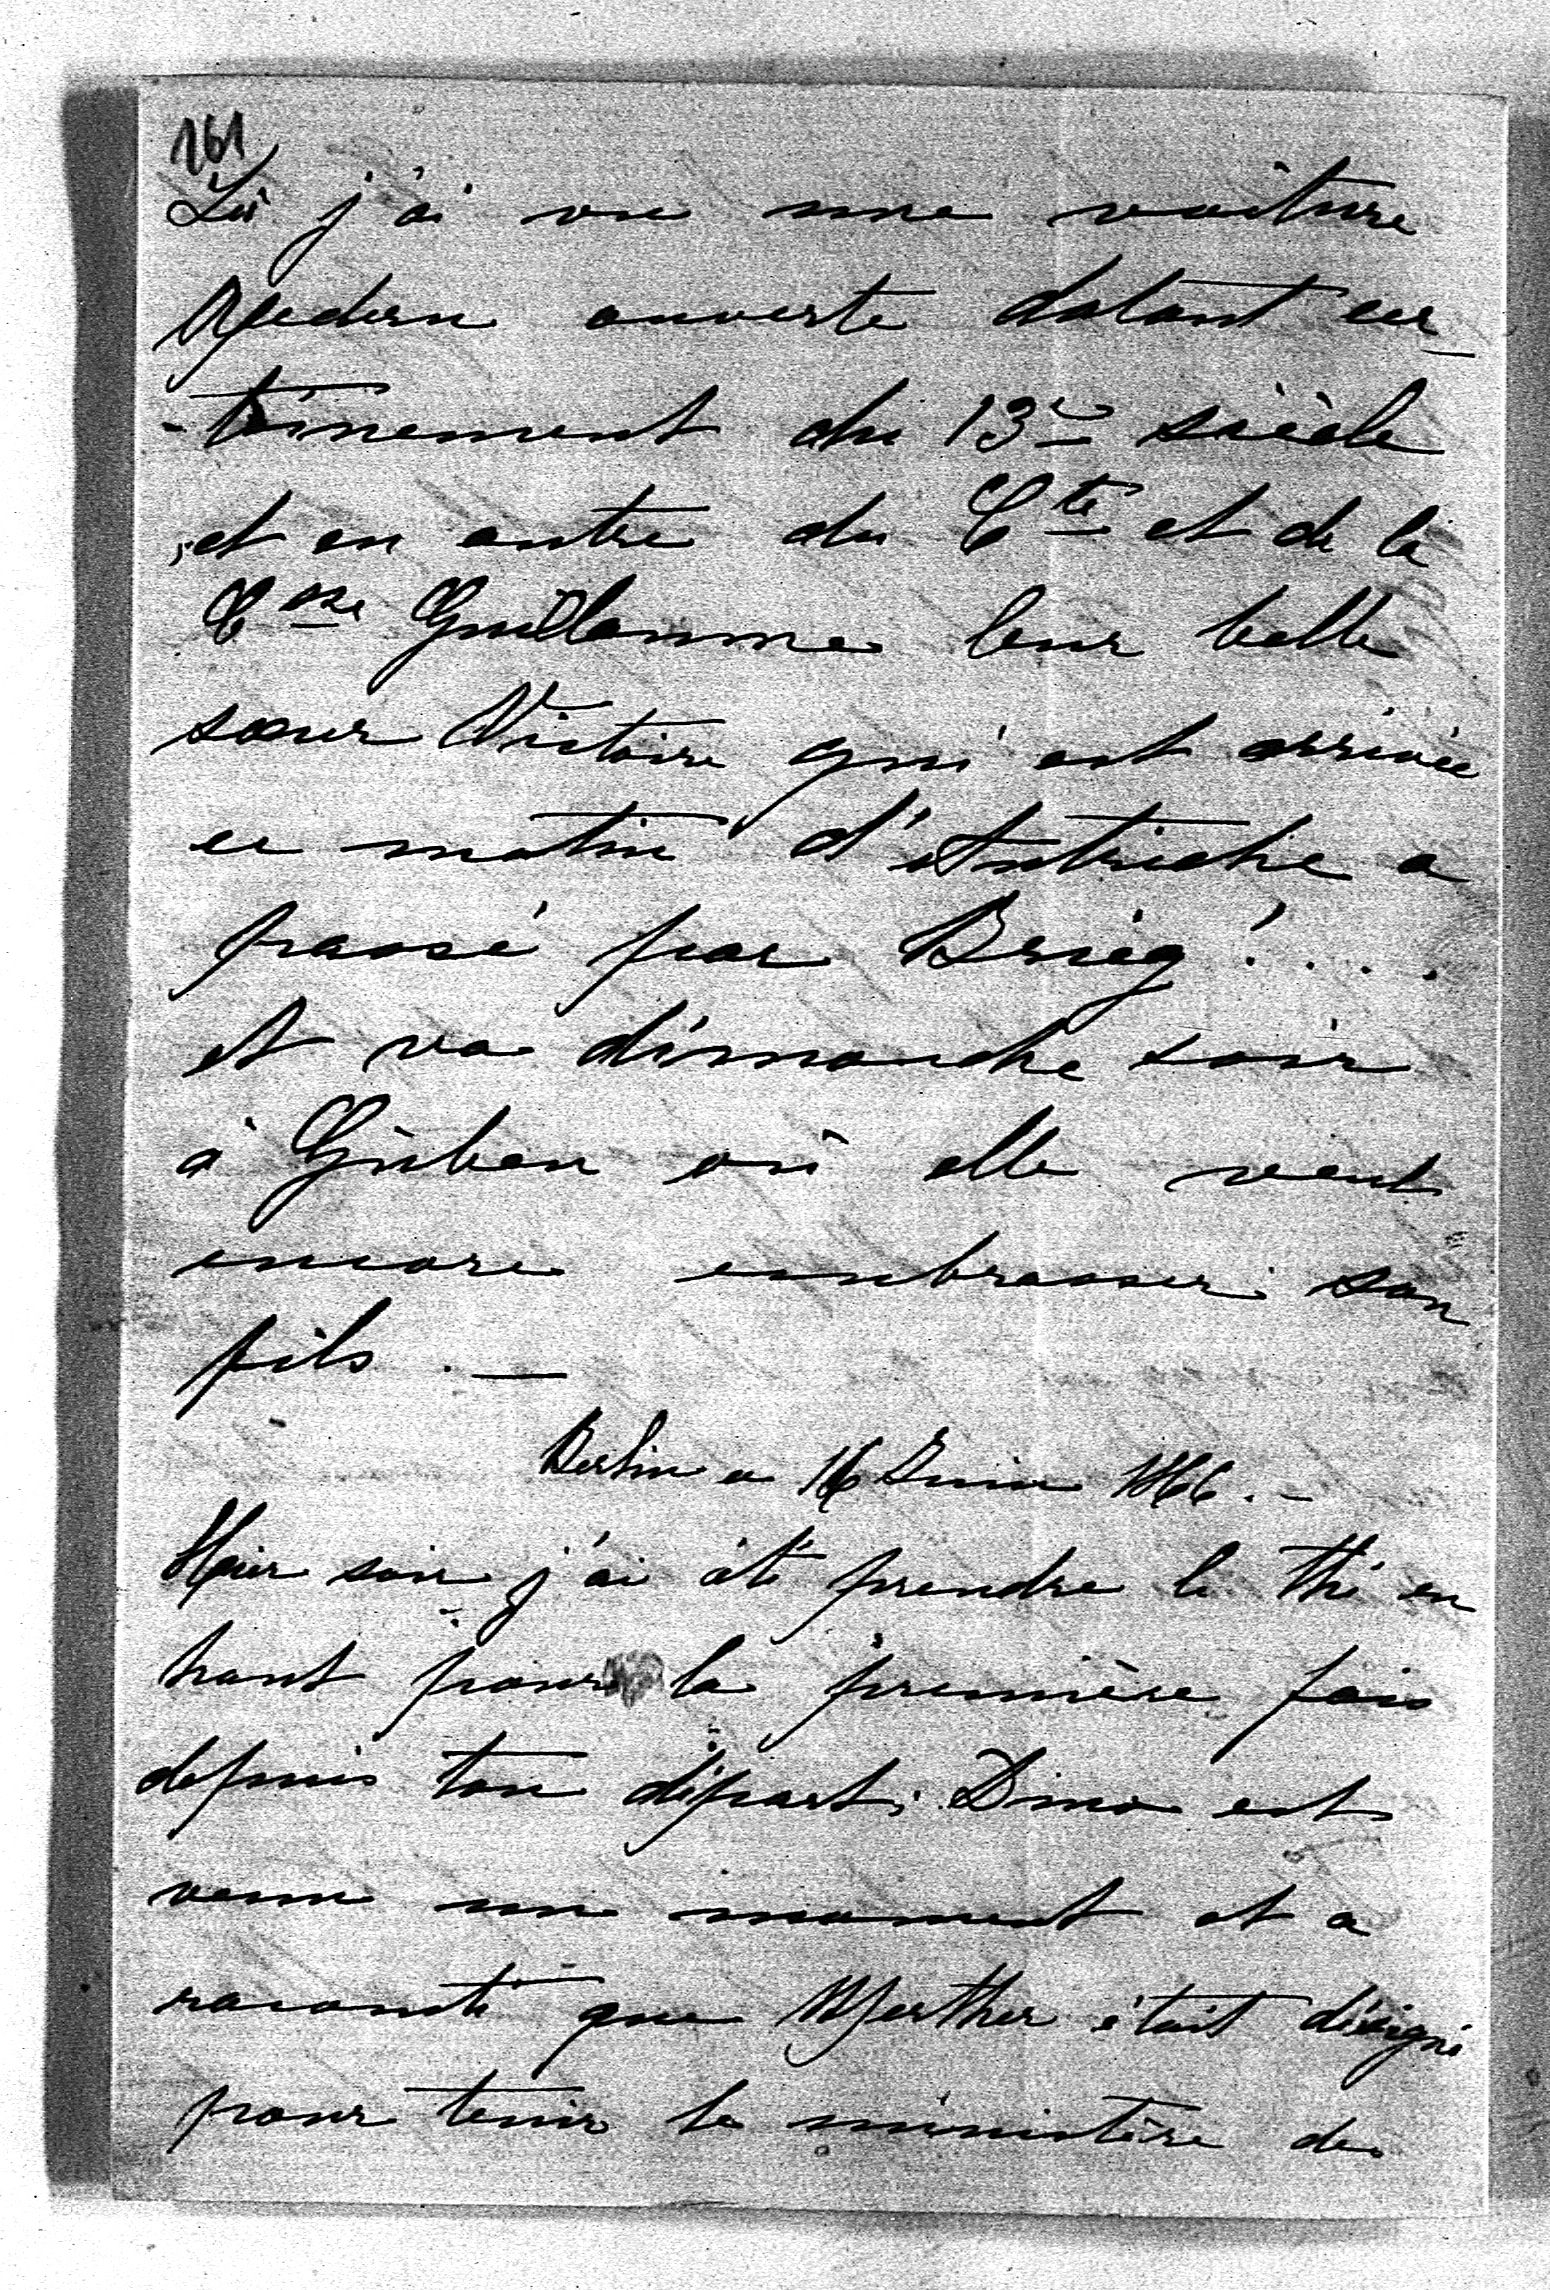 161
Là j'ai vu une voiture
Redern ouverte datant cer-
-tainement du 13me siècle
et en outre du Cte et de la
Csse Guillaume leur belle
sœur Victoire qui est arrivée
ce matin d'Autriche a
passé par Brieg!....
et va dimanche soir
à Guben où elle veut
encore embrasser son
fils. —
Berlin ce 16 Juin 1866. –
Hier soir j'ai été prendre le thé en
haut pour la première fois
depuis ton départ. Dino est
venu un moment et a
raconté que Werther était désigné
pour tenir le ministère des